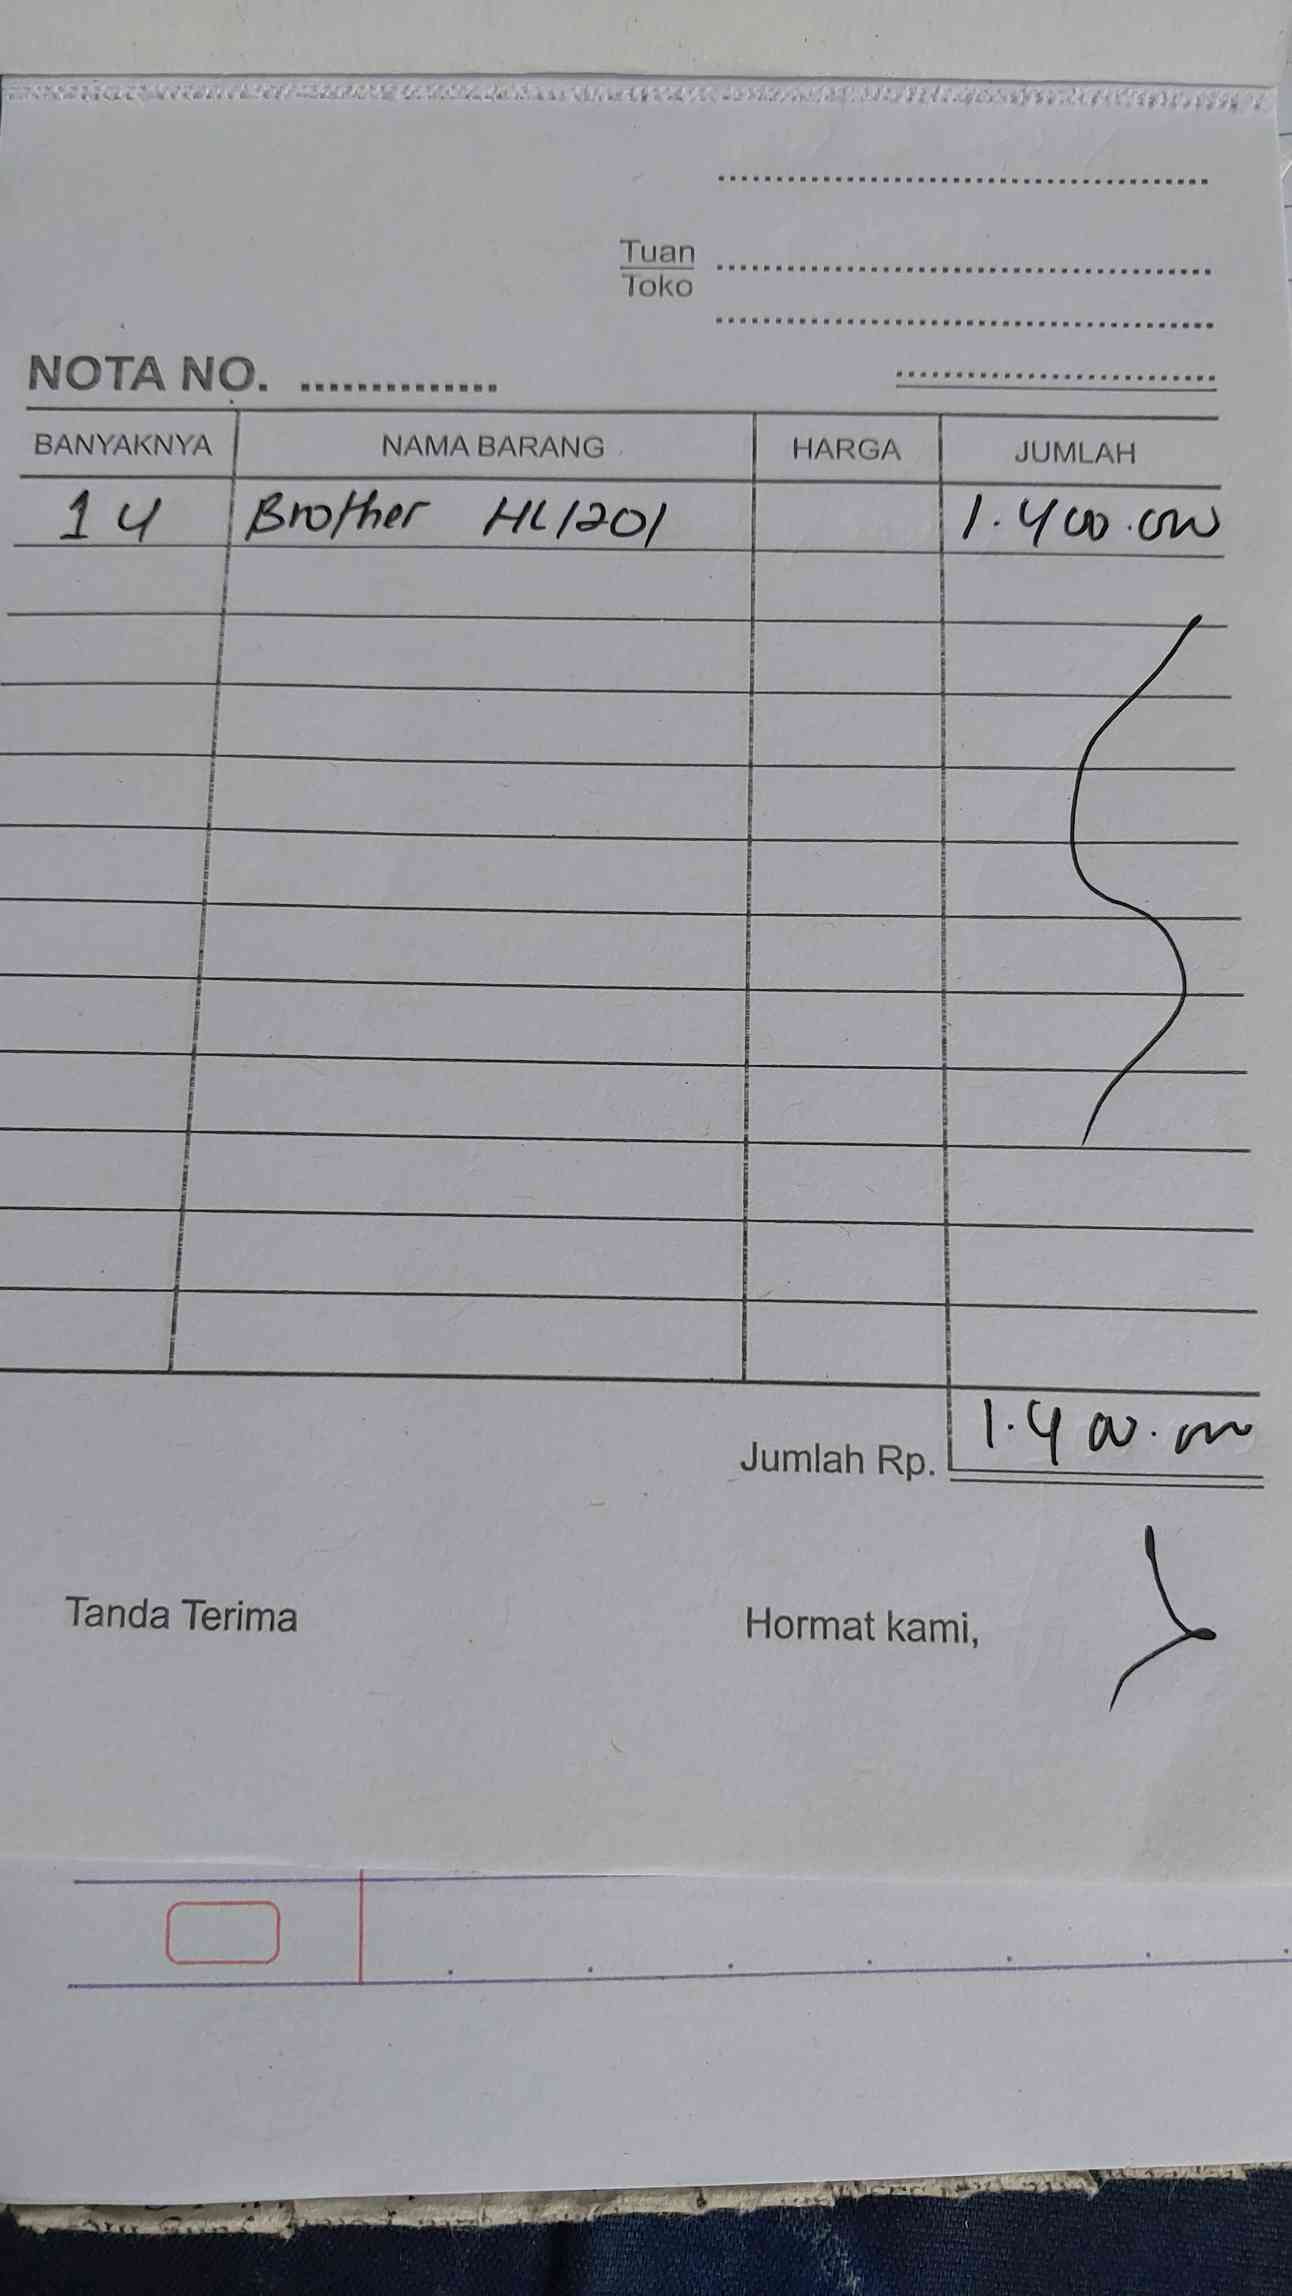 Tuan
Toko
NOTA NO.
BANYAKNYA NAMA BARANG HARGA JUMLAH
1 U Brother HL1201 1.400.000
Jumlah Rp. 1.400.000
Tanda Terima Hormat kami,